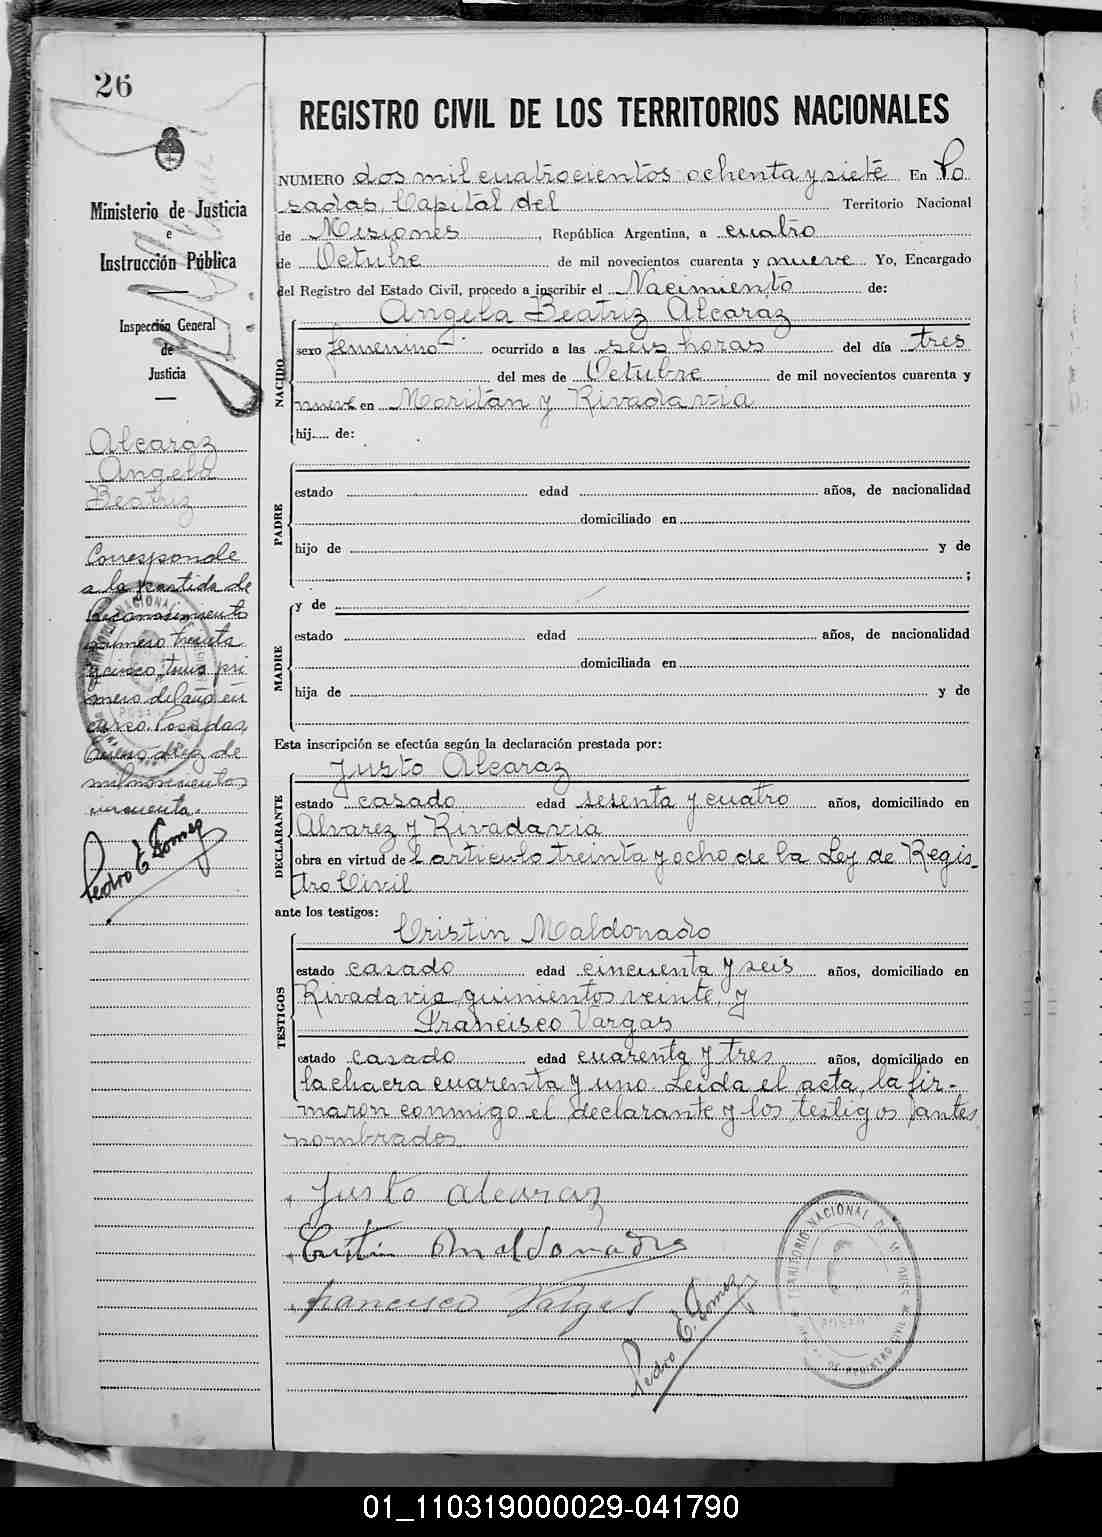 26
Ministerio de Justicia
e
Instrucción Pública
Inspección General
de
Justicia
Alcaraz
Angela
Beatriz
Corresponde
a la partida de
Reconocimiento
número treinta
y cinco, tomo pri
mero del año en
curso. Posadas,
Enero diez de
mil novecientos
cincuenta.
Pedro E Gomez
REGISTRO CIVIL DE LOS TERRITORIOS NACIONALES
NUMERO dos mil cuatrocientos ochenta y siete En Po
sadas, Capital del Territorio Nacional
de Misiones, República Argentina, a cuatro
de Octubre de mil novecientos cuarenta y nueve Yo, Encargado
del Registro del Estado Civil, procedo a inscribir el Nacimiento de:
Angela Beatriz Alcaraz
NACIDO
sexo femenino ocurrido a las seis horas del día tres
del mes de Octubre de mil novecientos cuarenta y
nueve en Moritán y Rivadavia
hij.... de:
PADRE
estado edad años, de nacionalidad
domiciliado en
hijo de y de
;
MADRE
y de
estado edad años, de nacionalidad
domiciliada en
hija de y de
Esta inscripción se efectúa según la declaración prestada por:
Justo Alcaraz
DECLARANTE
estado casado edad sesenta y cuatro años, domiciliado en
Alvarez y Rivadavia
obra en virtud del articulo treinta y ocho de la Ley de Regis-
tro Civil
ante los testigos:
Cristin Maldonado
TESTIGOS
estado casado edad cincuenta y seis años, domiciliado en
Rivadavia quinientos veinte, y
Francisco Vargas
estado casado edad cuarenta y tres años, domiciliado en
la chacra cuarenta y uno. Leida el acta, la fir-
maron conmigo el declarante y los testigos antes
nombrados
Justo Alcaraz
Cristin Maldonado
Francisco Vargas
Pedro E. Gomez
TERRITORIO NACIONAL DE MISIONES
REGISTRO CIVIL
01_110319000029-041790